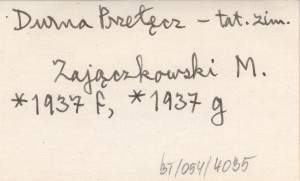 Durna Przełęcz - tat. zim.
Zajączkowski M.
*1937 f, *1937 g
ST/054/4035